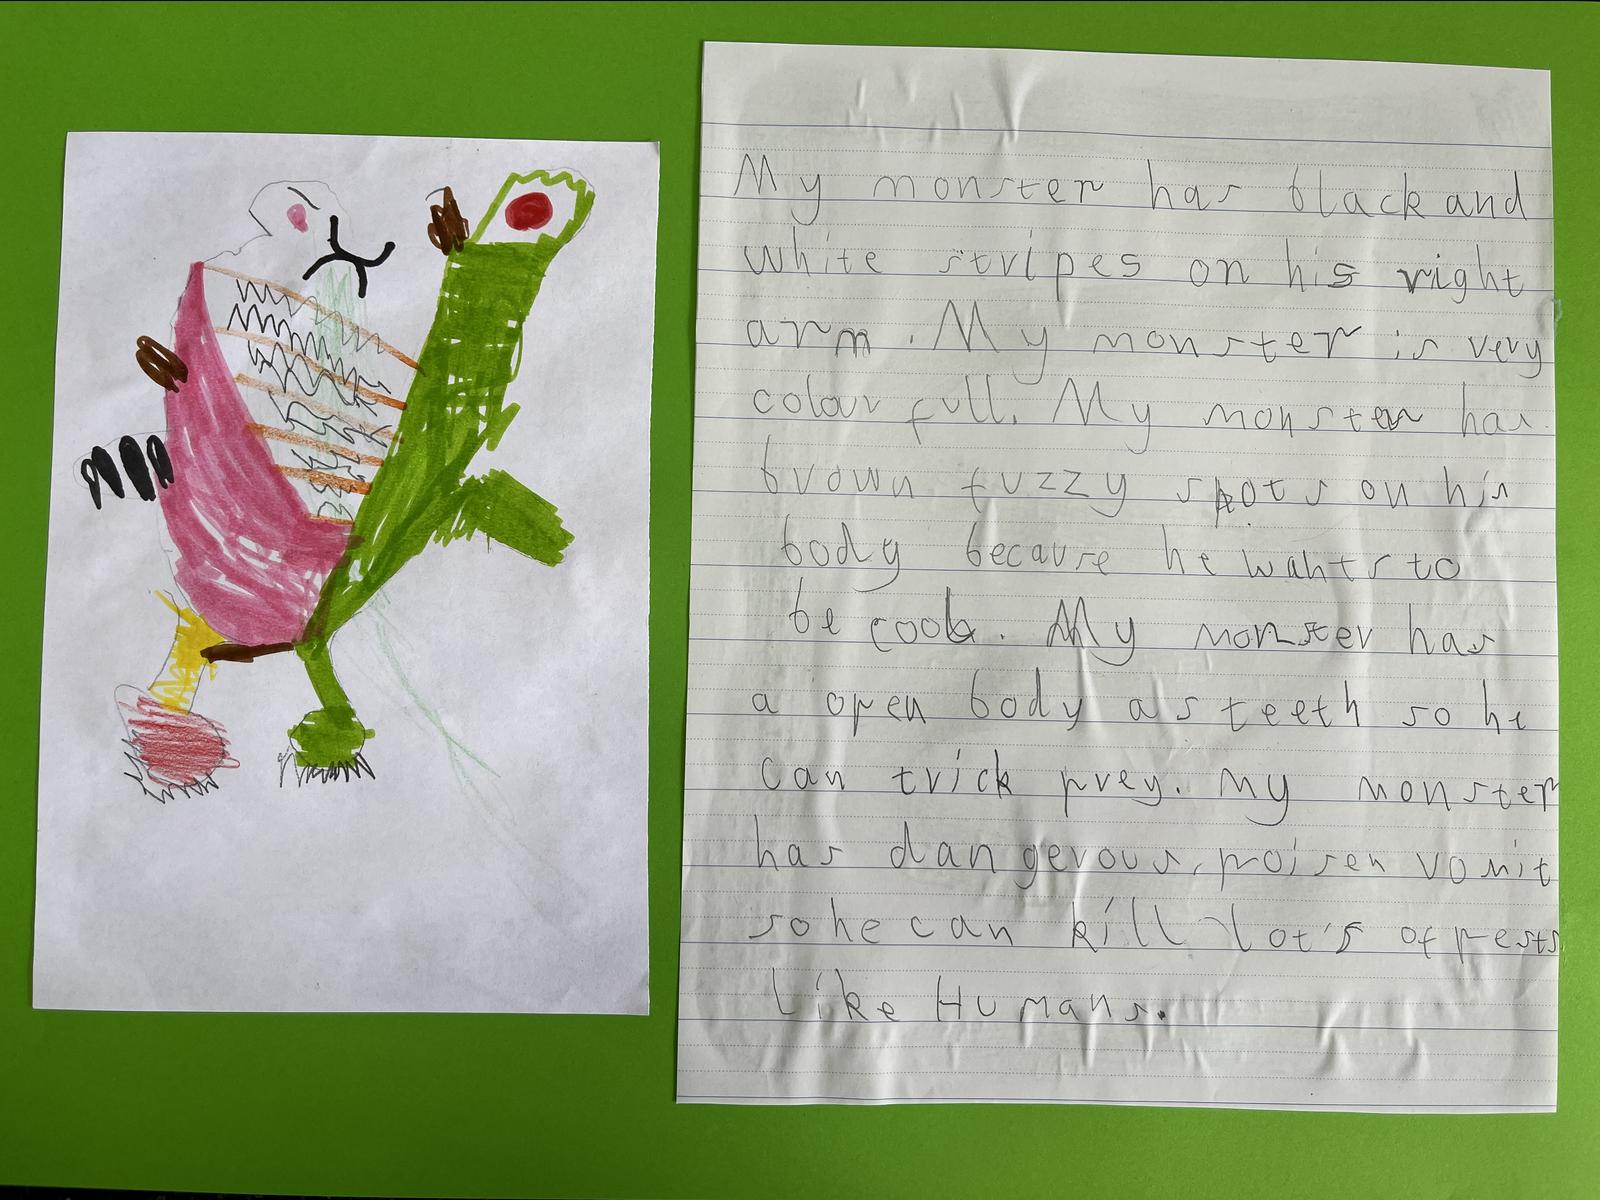 My monster has black and
white stripes on his right
arm. My monster is very
colour full. My monster has
brown fuzzy spots on his
body because he wants to
be cool. My monster has
a open body as teeth so he
can trick prey. My monster
has dangerous, poisen vomit
so he can kill lot's of pests
like Humans.